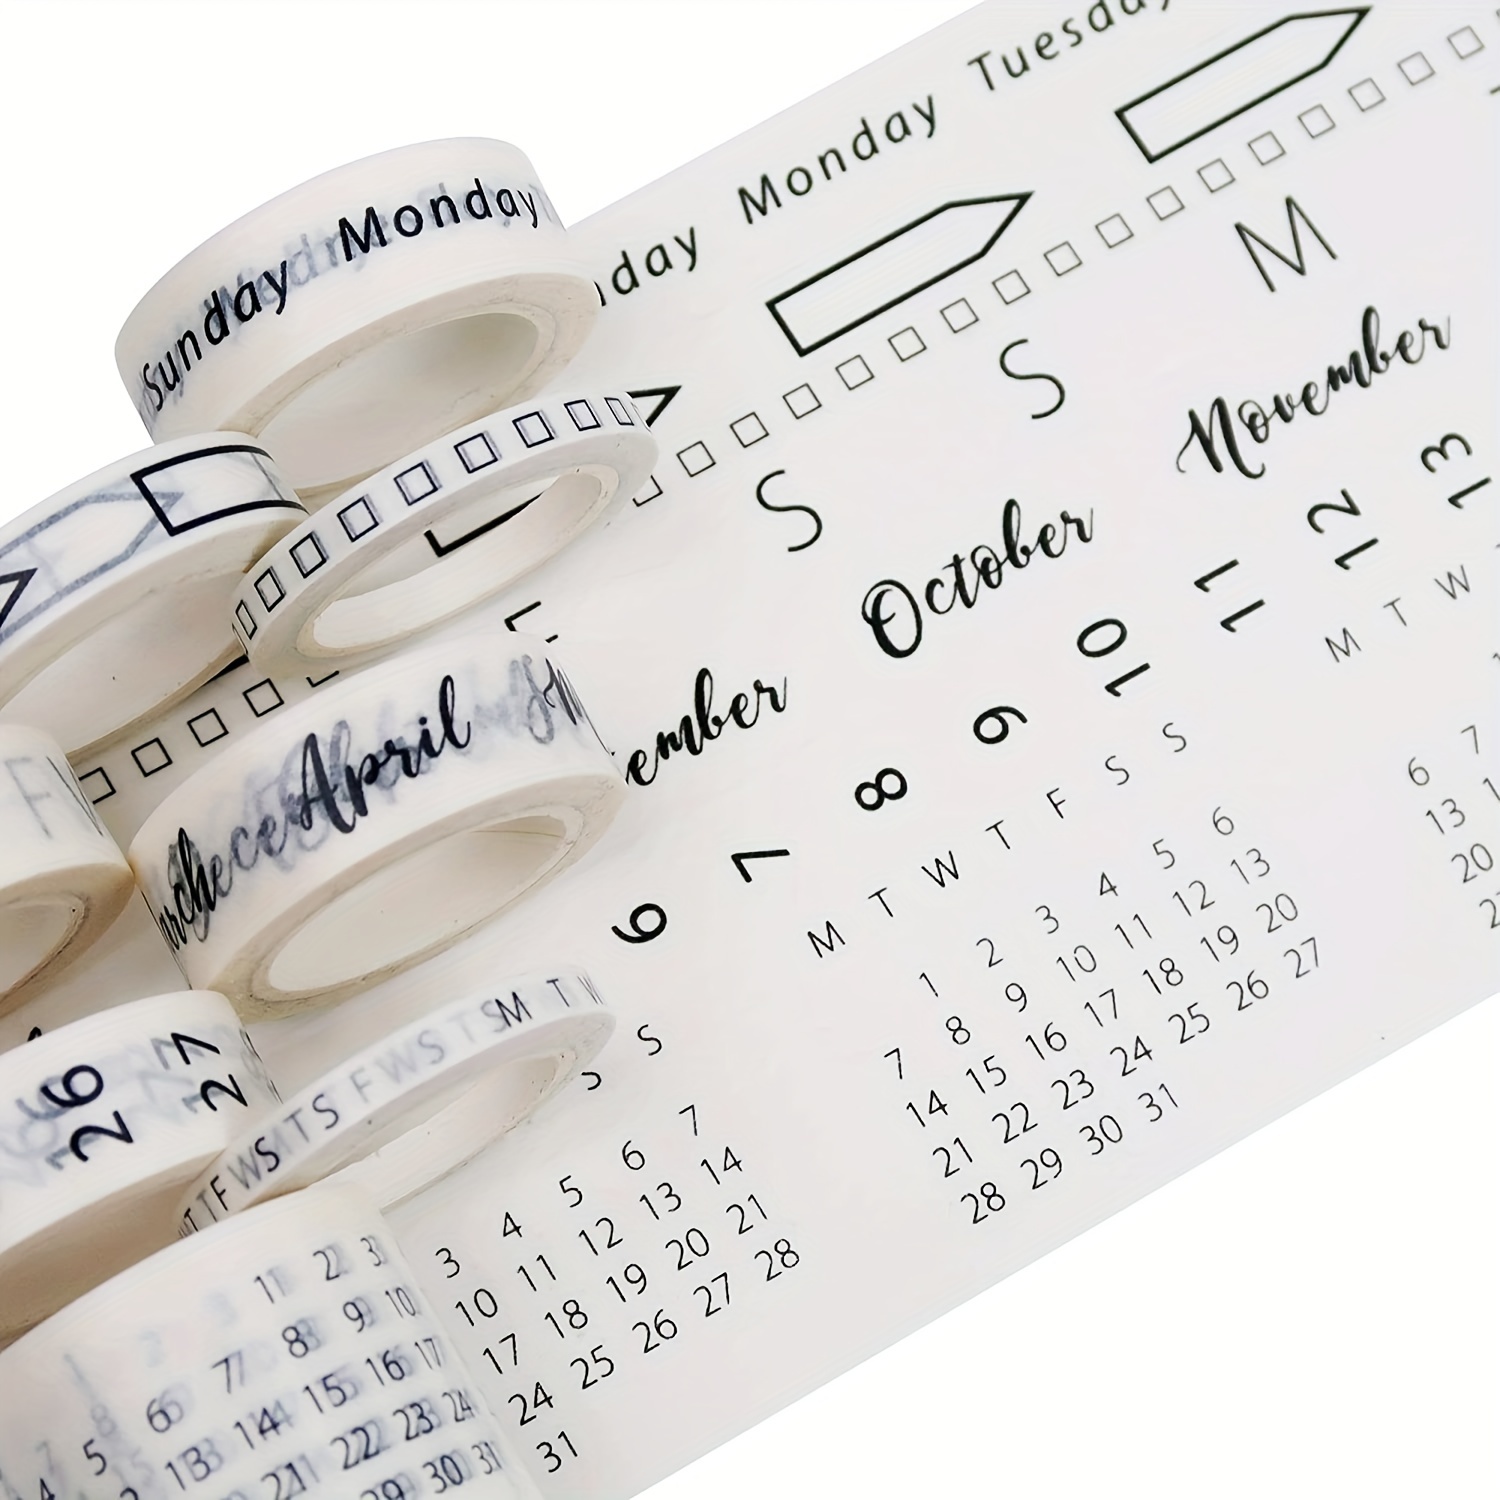 Sunday Monday
nday Monday Tuesday
S S M
April
ember October November
26 27
6 7 8 9 10 11 12 13
T S F W S T S M T W
T F W S T S
S
M T W T F S S
M T W
11 22 3
8 9 10
6 7
15 16 17
5 13 14
22 23 24
21
29 30 31
3 4 5 6 7
10 11 12 13 14
17 18 19 20 21
24 25 26 27 28
31
1 2 3 4 5 6
7 8 9 10 11 12 13
14 15 16 17 18 19 20
21 22 23 24 25 26 27
28 29 30 31
6 7
13
20